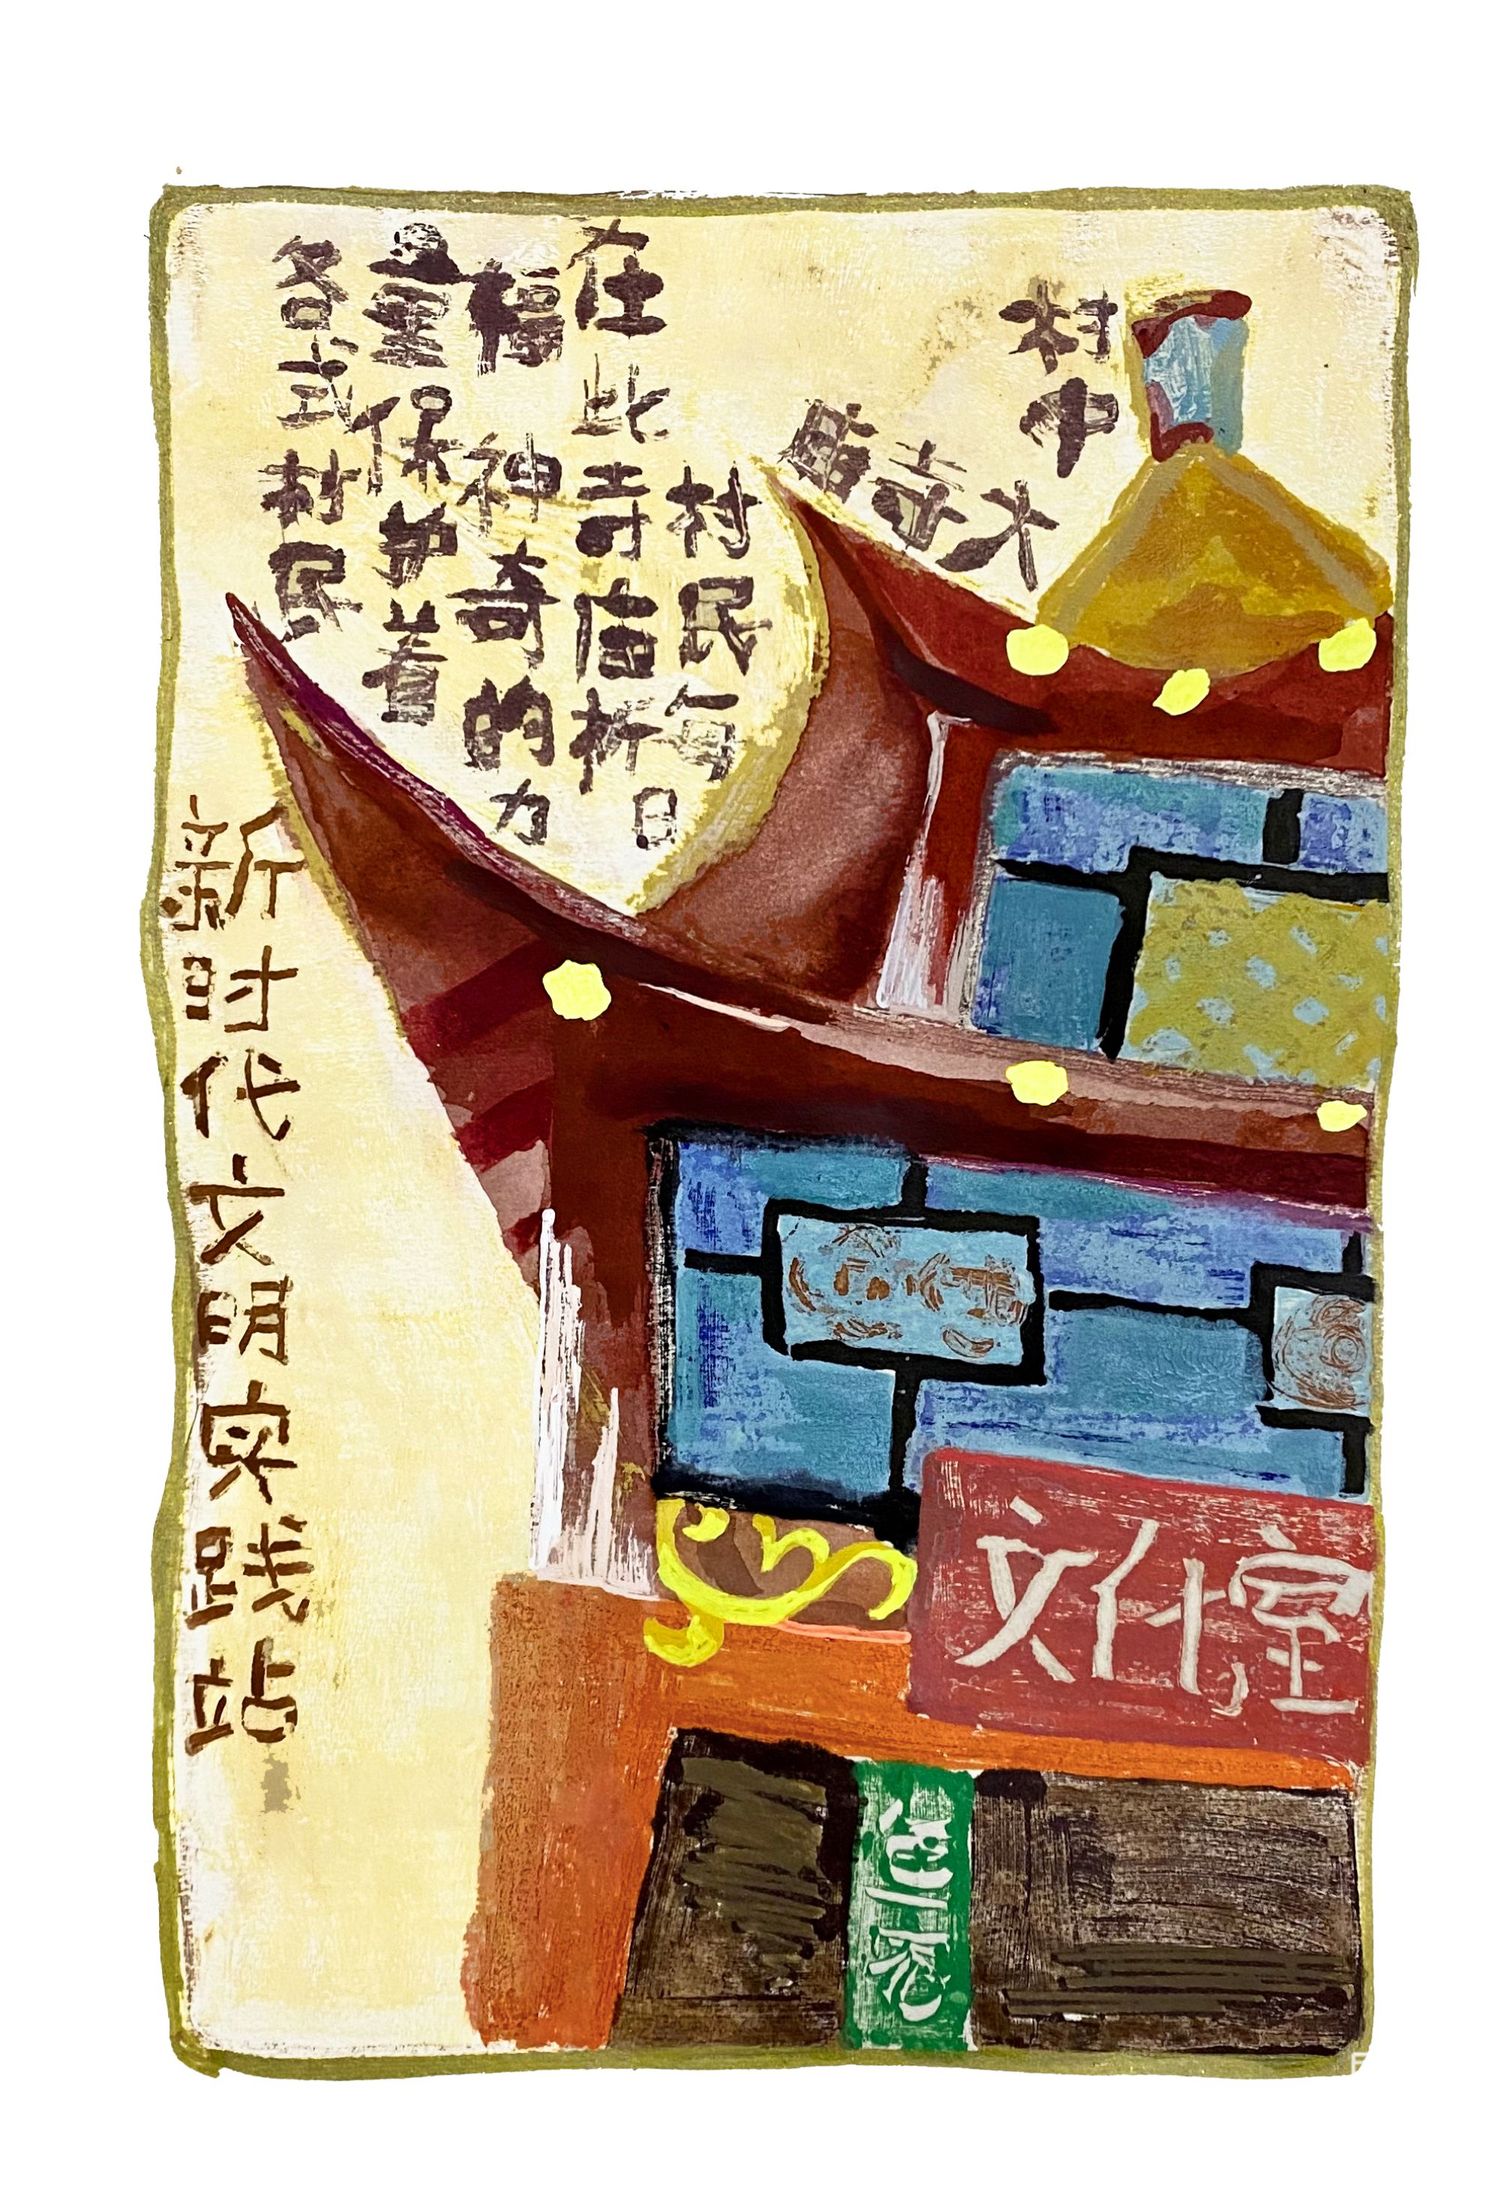 村中
村民每日
在此寺庙祈
福神奇的力
量保护着
各式村民
新时代文明实践站
文化室